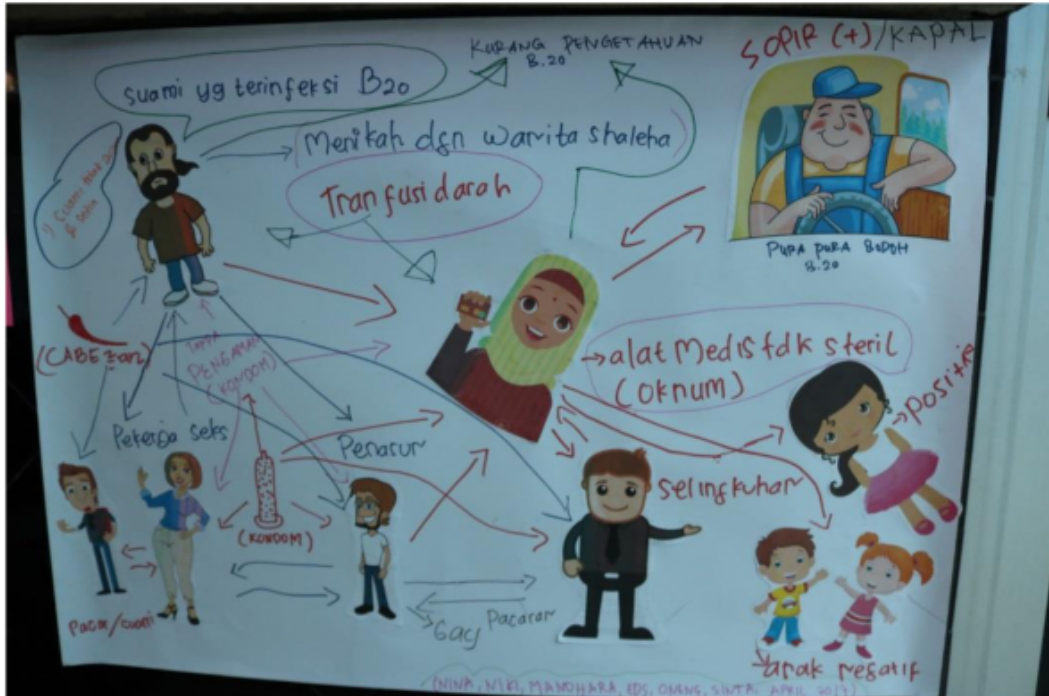 KURANG PENGETAHUAN
B.20
SOPIR (+)/KAPAL
Suami yg terinfeksi B20
Menikah dgn wanita shaleha
Tranfusi darah
PURA PURA BODOH
B.20
(CABE2an)
TANPA
PENGAMAN
(KONDOM)
→alat Medis tdk steril
(OKNUM)
→positif
Pekerja seks
Penasun
Selingkuhan
(KONDOM)
Pacar/suami
Gay
Pacaran
anak negatif
(NINA, NIKI, MANOHARA, EDS, ONENG, SINTA. APRIL 2017)